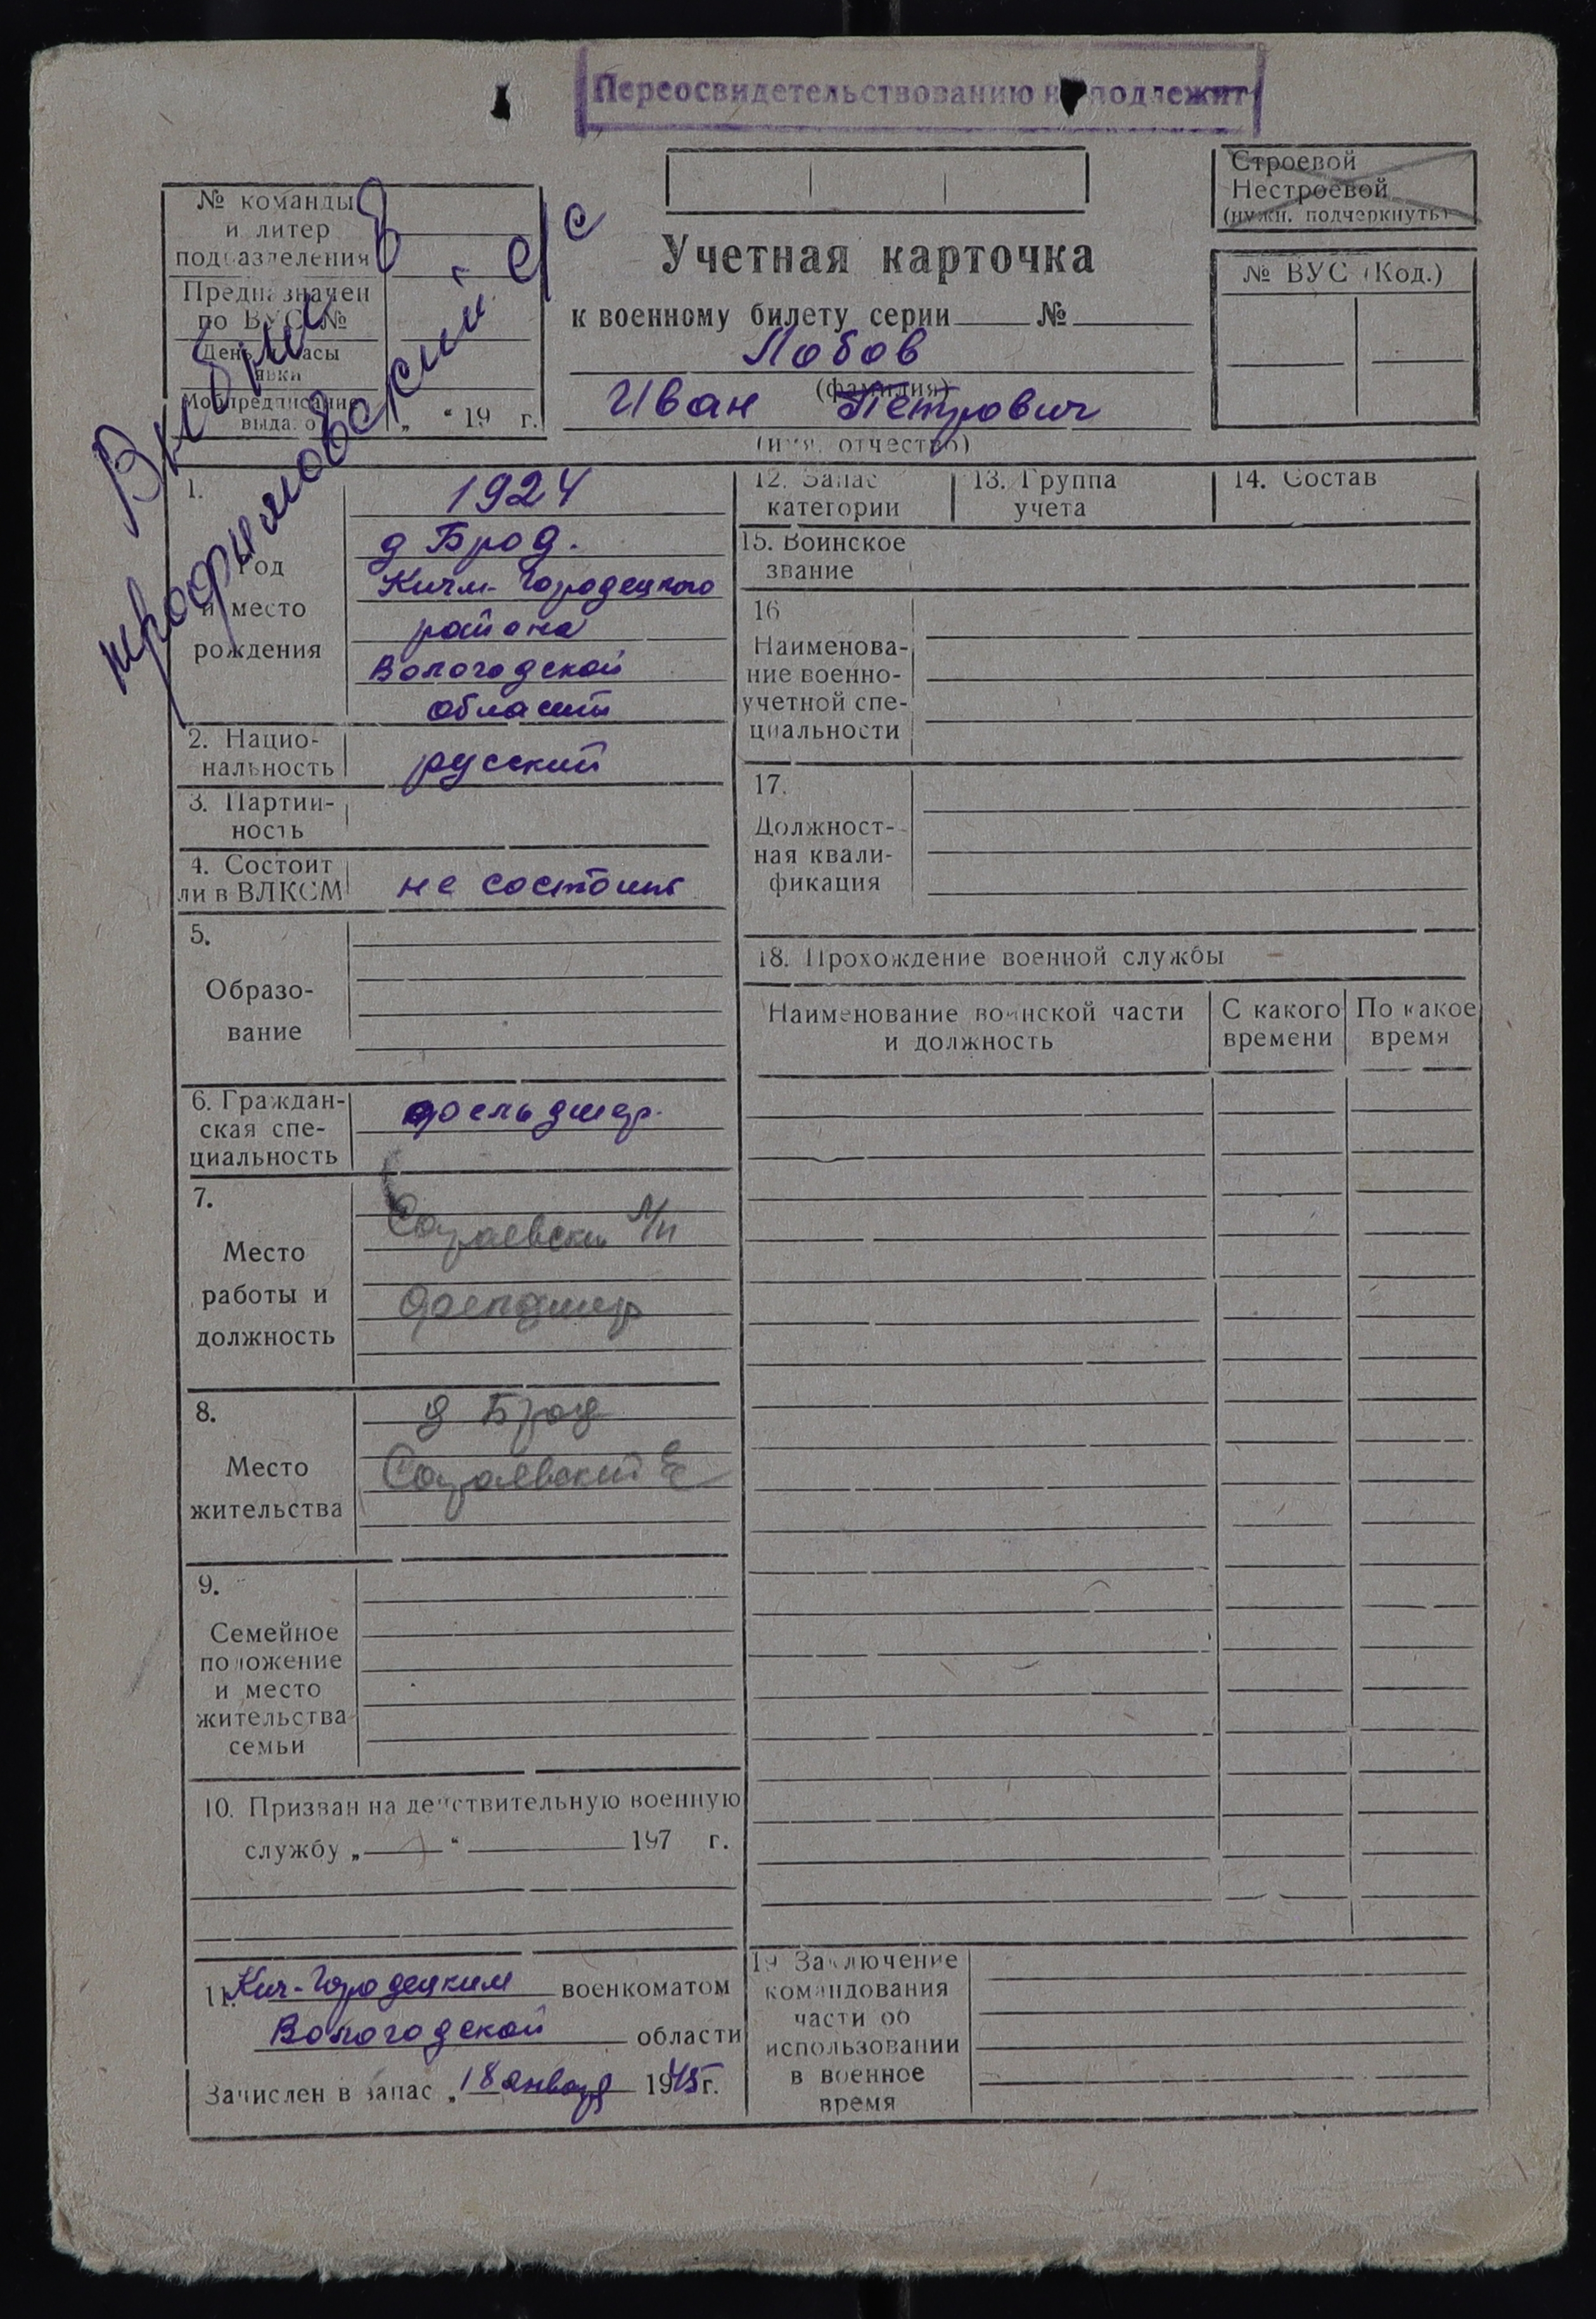 Переосвидетельствованию не подлежит
Строевой
Нестроевой
(нужн. подчеркнуть)
№ команды
и литер
подразделения
Предназначен
по ВУС №
День и часы
явки
Мобпредписание
выдано
„ “ 19 г.
Выбыл в
трофимовский с/с
Учетная карточка
к военному билету серии № 
Лобов
(фамилия)
Иван Петрович
(имя, отчество)
№ ВУС (Код.)
1.
Год
и место
рождения
1924
д Брод.
Кичм-Городецкого
района
Вологодской
области
2. Нацио-
нальность
русский
3. Партий-
ность
4. Состоит
ли в ВЛКСМ
не состоит
5.
Образо-
вание
6. Граждан-
ская спе-
циальность
фельдшер.
7.
Место
работы и
должность
фельдшер
8.
Место
жительства
д Брод
9.
Семейное
положение
и место
жительства
семьи
10. Призван на действительную военную
службу „ “ 197 г.
11. Кич-Городецким военкоматом
Вологодской области
Зачислен в запас „18 января 1945 г.
12. Запас
категории
13. Группа
учета
14. Состав
15. Воинское
звание
16
Наименова-
ние военно-
учетной спе-
циальности
17.
Должност-
ная квали-
фикация
18. Прохождение военной службы
Наименование воинской части
и должность
С какого
времени
По какое
время
19 Заключение
командования
части об
использовании
в военное
время